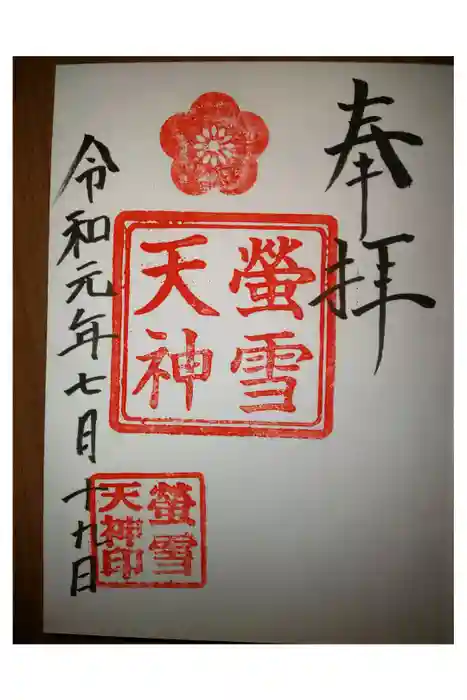 奉拝
螢雪
天神
螢雪
天神印
令和元年七月十九日